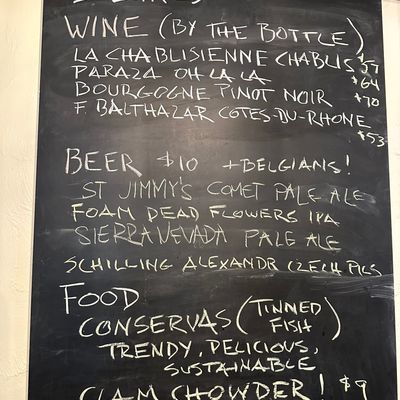 WINE (BY THE BOTTLE)
LA CHABLISIENNE CHABLIS $57
PARAZA OH LA LA $64
BOURGOGNE PINOT NOIR $70
F. BALTHAZAR COTES-DU-RHONE $53
BEER $10 +BELGIANS!
ST JIMMY'S COMET PALE ALE
FOAM DEAD FLOWERS IPA
SIERRA NEVADA PALE ALE
SCHILLING ALEXANDR CZECH PILS
FOOD
CONSERVAS (TINNED FISH)
TRENDY, DELICIOUS,
SUSTAINABLE
CLAM CHOWDER! $9